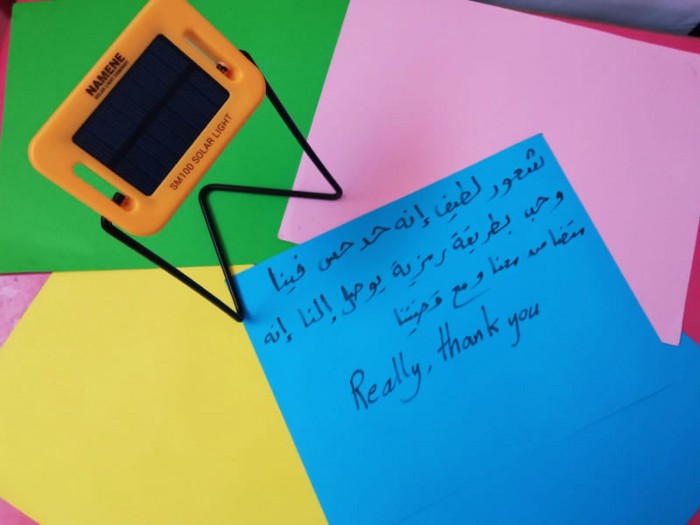 NAMENE
SOLAR LIGHT COMPANY
SM100 SOLAR LIGHT
شعور لطيف إنه حد حس فينا
وحب بطريقة رمزية يوصل إلنا إنه
متضامن معنا ومع قضيتنا
Really, thank you